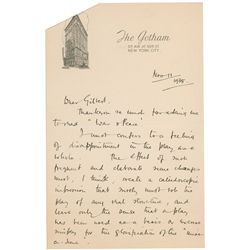 The Gotham
NEW YORK CITY
Nov 11
1935
Dear Gilbert,
Thank you so much for asking me
to read "War & Peace"
I must confess to a feeling
of disappointment in the play as a
whole. The effect of such
frequent and elaborate scene changes
must, I think, create a kaleidoscopic
impression that surely must rob the
play of any real structure, and
leave only the sense that a play
has been used as a basis or excuse
simply for the glorification of the